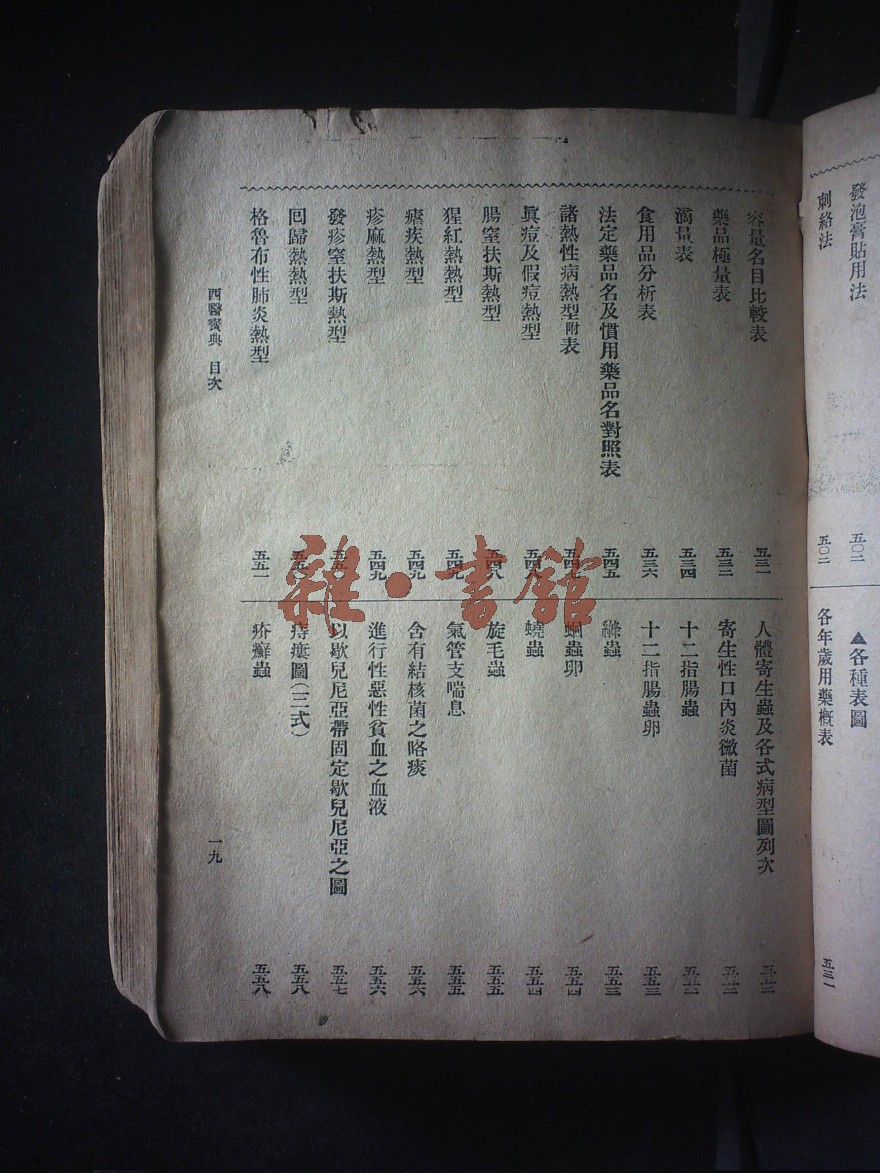 發泡膏貼用法 五〇二
刺絡法 五〇二
▲各種表圖
各年歲用藥概表 五三一
容量名目比較表 五三一
藥品極量表 五三二
滴量表 五三四
食用品分析表 五三六
法定藥品名及慣用藥品名對照表 五四五
諸熱性病熱型附表 五四七
眞痘及假痘熱型 五四八
腸窒扶斯熱型 五四八
猩紅熱熱型 五四九
瘧疾熱型 五四九
疹麻熱型 五四九
發疹窒扶斯熱型 五五〇
回歸熱熱型 五五〇
格魯布性肺炎熱型 五五一
人體寄生蟲及各式病型圖列次 五五二
寄生性口內炎黴菌 五五二
十二指腸蟲 五五二
十二指腸蟲卵 五五三
絛蟲 五五三
蛔蟲卵 五五四
蟯蟲 五五四
旋毛蟲 五五五
氣管支喘息 五五五
含有結核菌之咯痰 五五六
進行性惡性貧血之血液 五五六
以歇兒尼亞帶固定歇兒尼亞之圖 五五七
痔瘻圖(三式) 五五八
疥癬蟲 五五八
西醫寶典 目次
一九
雜·書館